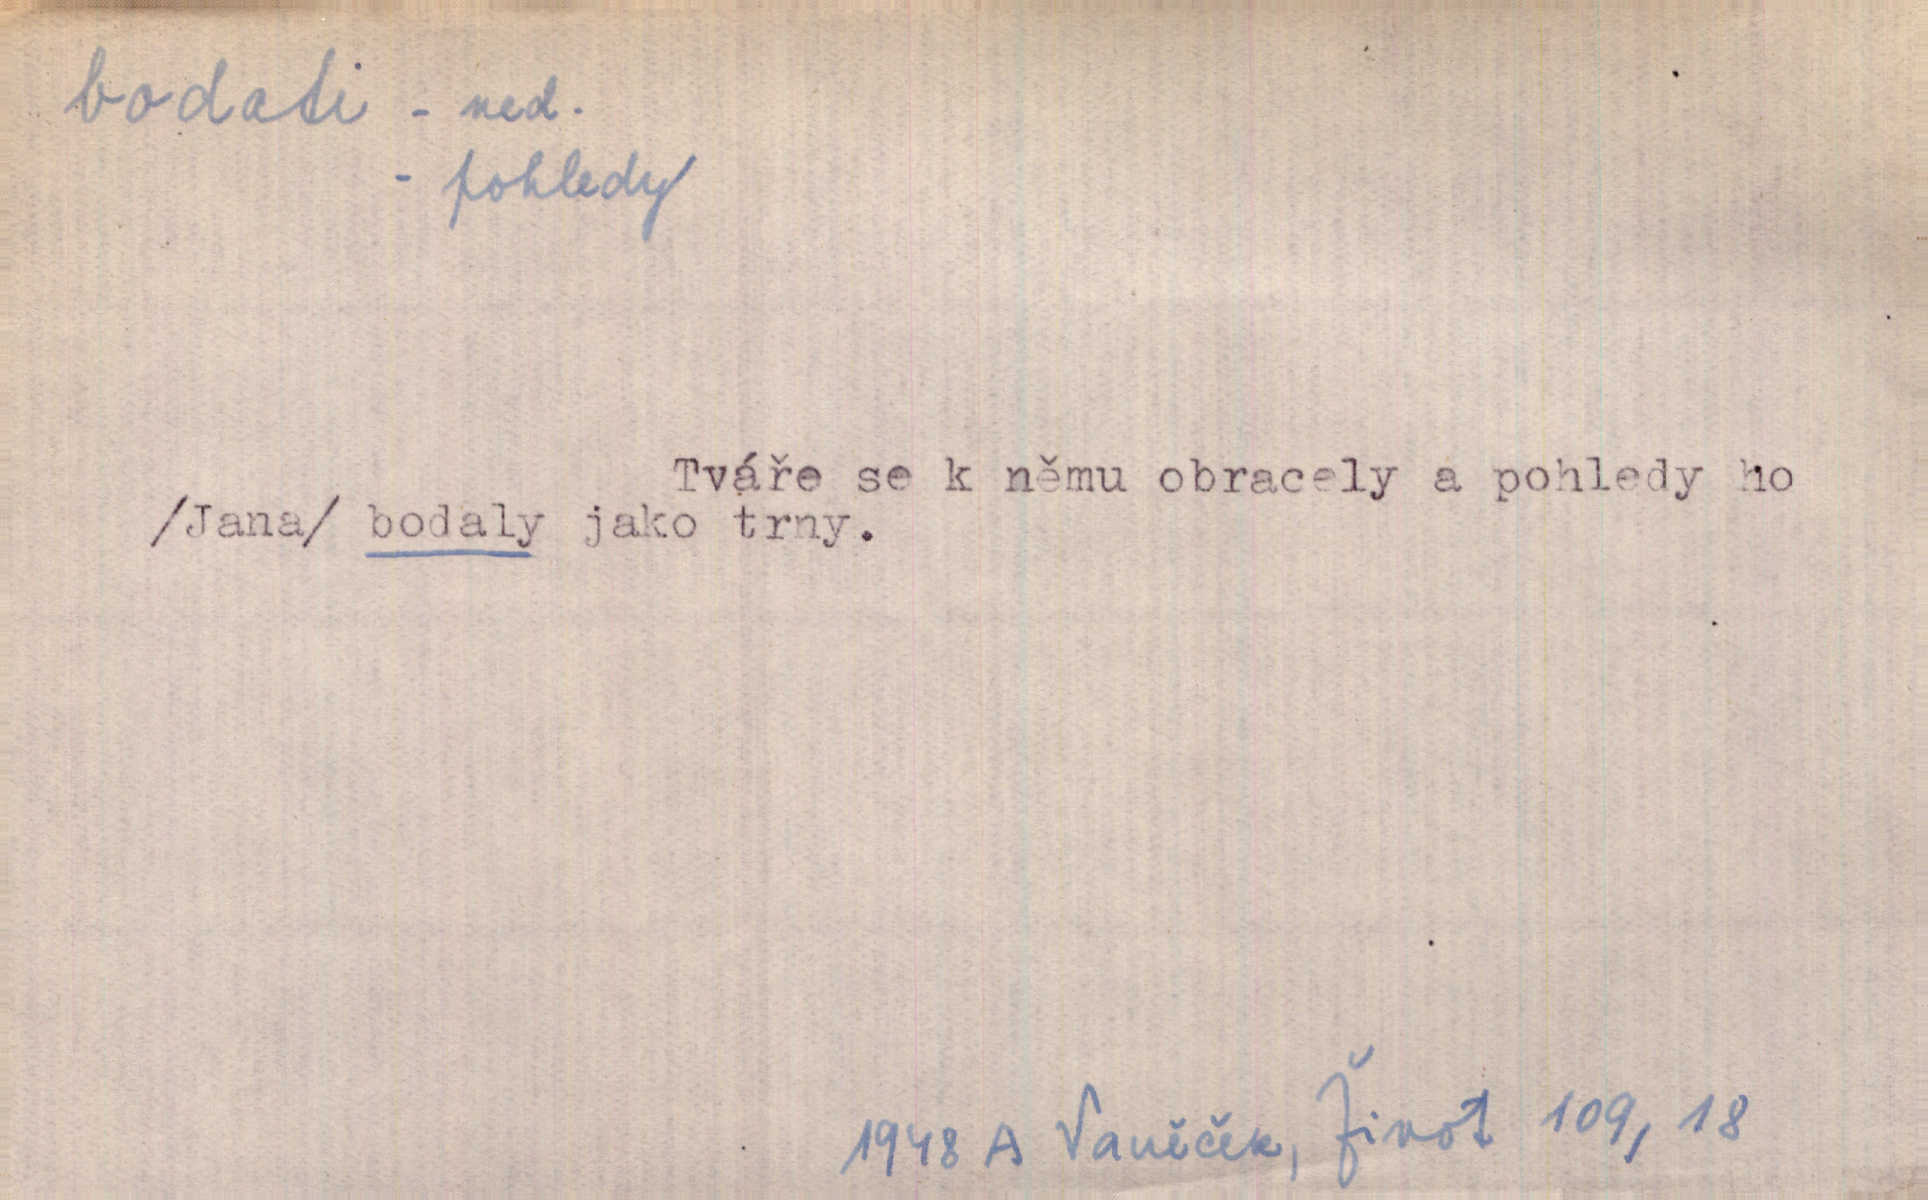 bodati - ned.
- pohledy
Tváře se k němu obracely a pohledy ho
/Jana/ bodaly jako trny.
1948 A Vaněček, Život 109, 18